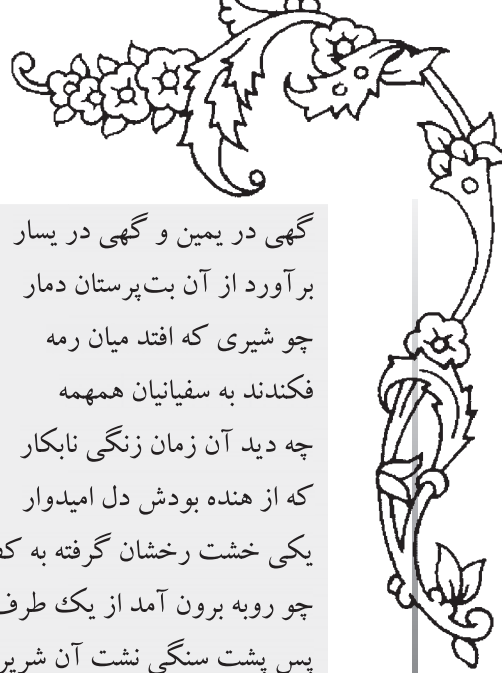 گهی در یمین و گهی در یسار
برآورد از آن بت‌پرستان دمار
چو شیری که افتد میان رمه
فکندند به سفیانیان همهمه
چه دید آن زمان زنگی نابکار
که از هنده بودش دل امیدوار
یکی خشت رخشان گرفته به
چو روبه برون آمد از یک طرف
پس پشت سنگی نشت آن شریر